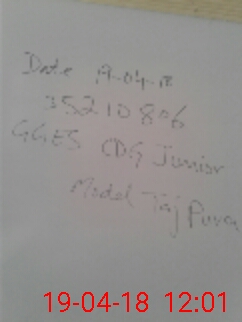 Date 19-04-18
35210806
GGES CDG Junior
Model Taj Pura
19-04-18 12:01